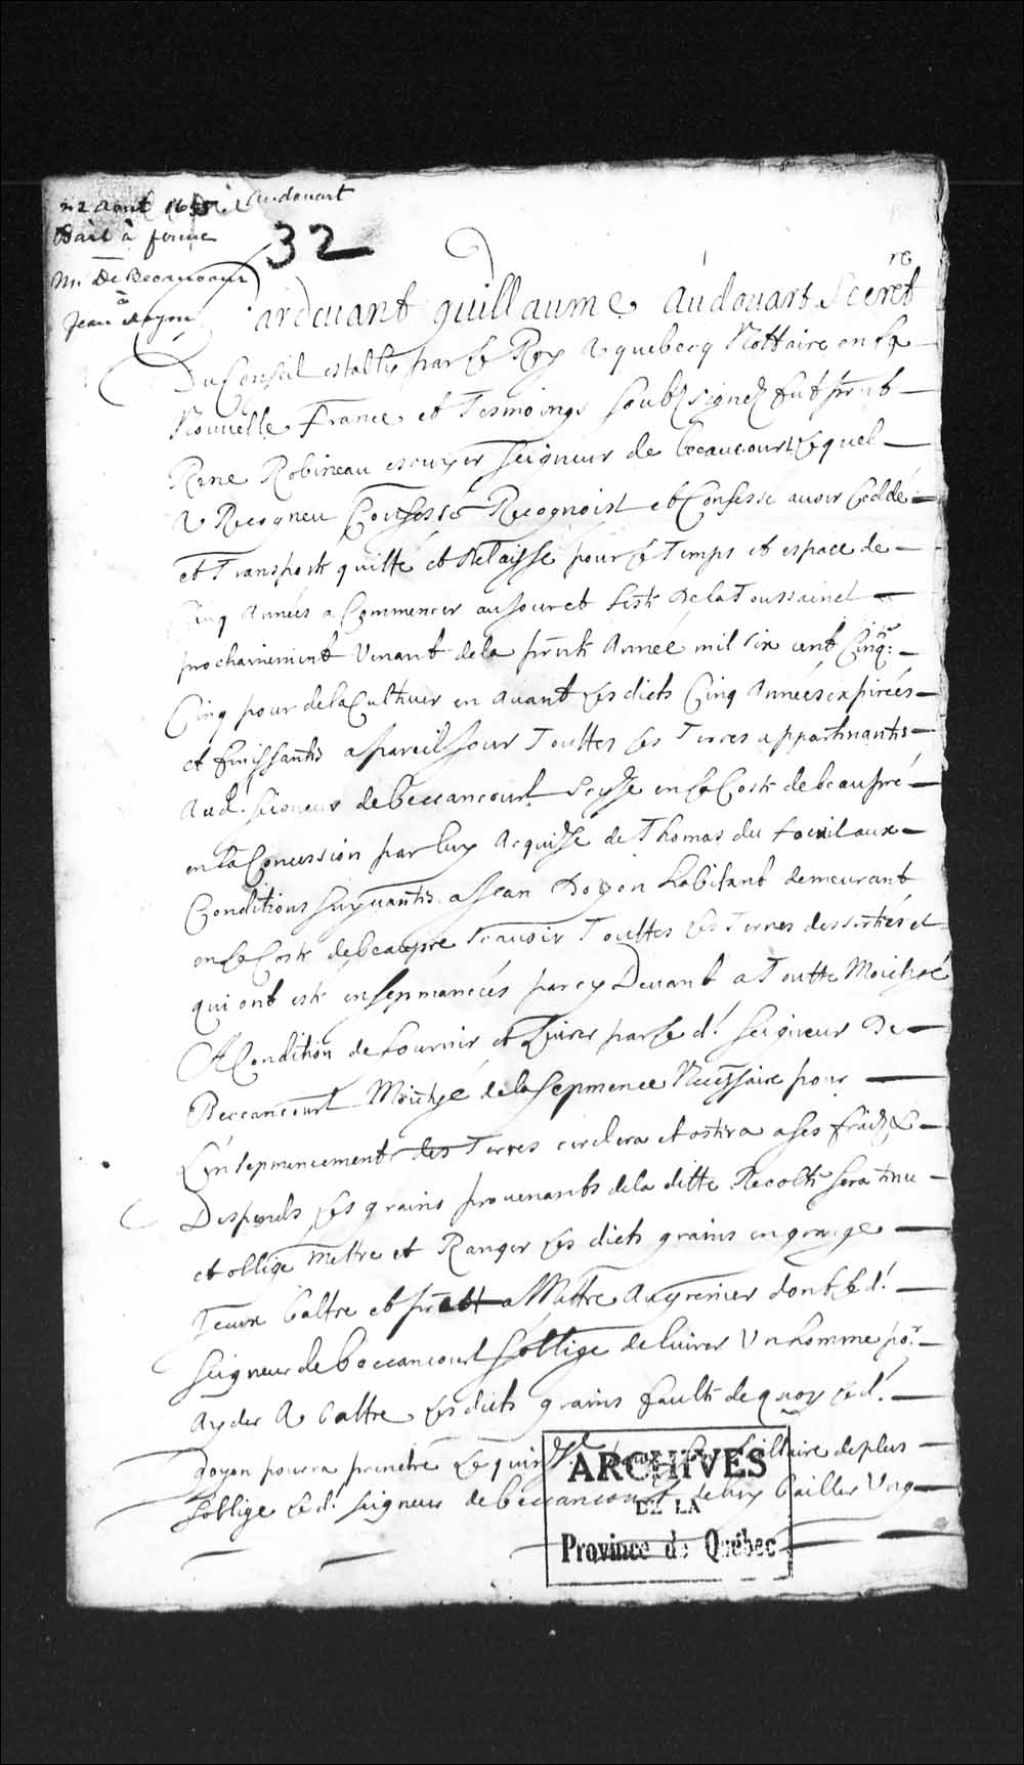 22 Aout 1655 Audouart
Bail à ferme
32
Mr De Becancour
à
Jean doyon
Pardevant guillaume Audouart Secret
Du Conseil estably par le Roy A quebecq Nottaire en la
Nouvelle France et Tesmoings soubz signez fut prnt
Rene Robineau escuyer seigneur de beccancourt Lequel
A Recogneu Confessé Recognoist et Confesse avoir Ceddé
et Transporté quitté et delaissé pour le Temps et espace de
Cinq Années a Commencer au Jour et feste de la Toussainct
prochainement Venant de la prnte Année mil six cent Cinqte
Cinq pour de la Cultiver en avant Les dicts Cinq Années expirées
et finissantes a pareil Jour Touttes les Terres appartenantes
Aud. seigneur de beccancourt scyse en la Coste de beaupré
en la Concession par luy Acquisse de Thomas du
Conditions suyvantes a Jean Doyon habitant demeurant
en la Coste de beaupre scavoir Touttes les Terres dessertées et
qui ont esté ensepmancées par cy Devant a Toutte Moictyé
A Condition de fournir et Livrer par le d. seigneur De
Beccancourt Moictyé de la sepmence Necessaire pour
L'ensepmencement des Terres cerclera et ostera a ses fraiz &
Despends Les grains provenants de la ditte Recolte sera tenu
et obligé Mettre et Ranger Les dicts grains en grange
Iceux battre et a Mettre Au grenier dont le d.
seigneur de beccancourt s'oblige de livrer Un homme por
Ayder A battre Les dicts grains faulte de quoy le d.
doyon pourra prendre
s'oblige le d. seigneur de beccancourt de luy bailler Ung
ARCHIVES
DE LA
Province de Québec